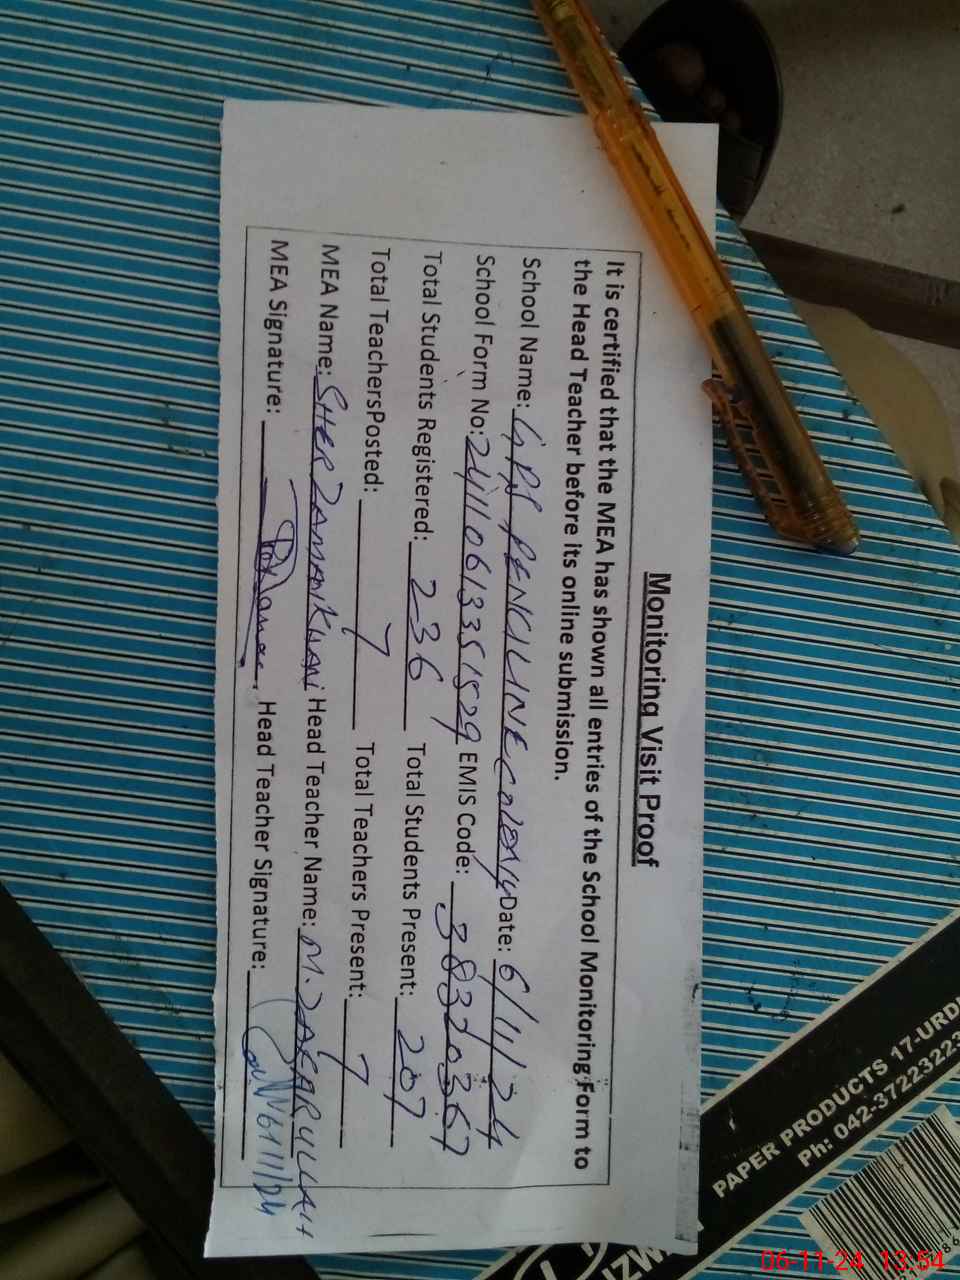 Monitoring Visit Proof
It is certified that the MEA has shown all entries of the School Monitoring Form to
the Head Teacher before its online submission.
School Name: GPS PENCILINE COLONY Date: 6/11/24
School Form No: 24110613351529 EMIS Code: 38320367
Total Students Registered: 236 Total Students Present: 207
Total TeachersPosted: 7 Total Teachers Present: 7
MEA Name: SHER ZAMAN KHAN Head Teacher Name: M. ZAFARULLAH
MEA Signature: Head Teacher Signature: 6/11/24
PAPER PRODUCTS 17-URD
Ph: 042-37223223
IZW
06-11-24 13:54